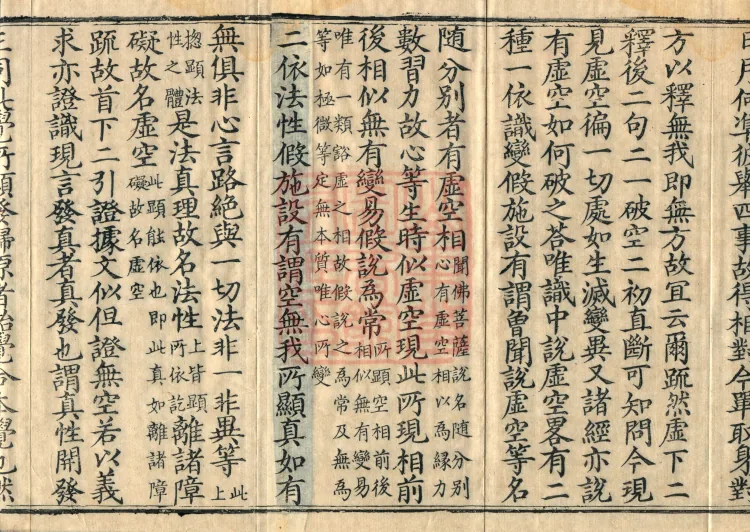 何準彼舉四事故得相對今單取身對
方以釋無我即無方故宜云爾䟽然虛下二
釋後二句二一破空二初直斷可知問今現
見虛空徧一切處如生滅變異又諸經亦說
有虛空如何破之荅唯識中說虛空畧有二
種一依識變假施設有謂曾聞說虛空等名
隨分別者有虛空相
聞佛菩薩說名隨分別
心有虛空相以為緣力
數習力故心等生時似虛空現此所現相前
後相似無有變易假說為常
所顯空相前後
相似無有變易
唯有一類豁虛之相故假說之為常及無為
等如極微等定無本質唯心所變
二依法性假施設有謂空無我所顯真如有
無俱非心言路絕與一切法非一非異等
此
上
揔顯法
性之體
是法真理故名法性
上皆顯
所依訖
離諸障
礙故名虛空
此顯能依也即此真如離諸障
礙故名虛空
䟽故首下二引證據文似但證無空若以義
求亦證識現言發真者真發也謂真性開發
覺所顯發歸原者始覺合本覺也然